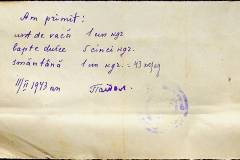 Am primit:
unt de vacă 1 un кgr
lapte dulce 5 cinci кgr.
smântână 1 un кgr. =
11/II 1943 an